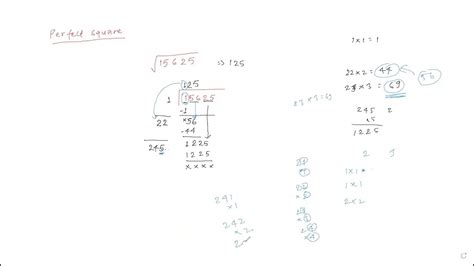 Perfect square
√15625 ⇒ 125
125
1 √15625
-1
22 ×56
-44
245 1225
1225
××××
1×1=1
22×2=44 56
23×3=69
23×3=69
245 2
×5
1225
2 3
1×1
1×1
2×2
241
×1
242
×2